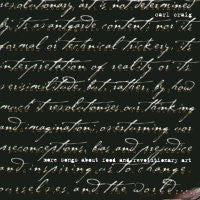 revolutionary art is not determined
carl craig
by its avantgarde content nor its
formal or technical trickery, its
interpretation of reality or its
verisimilitude, but, rather, by how
much it revolutionises our thinking
and imagination, overturning our
preconceptions, bias and prejudice
more songs about food and revolutionary art
and inspiring us to change
ourselves and the world...